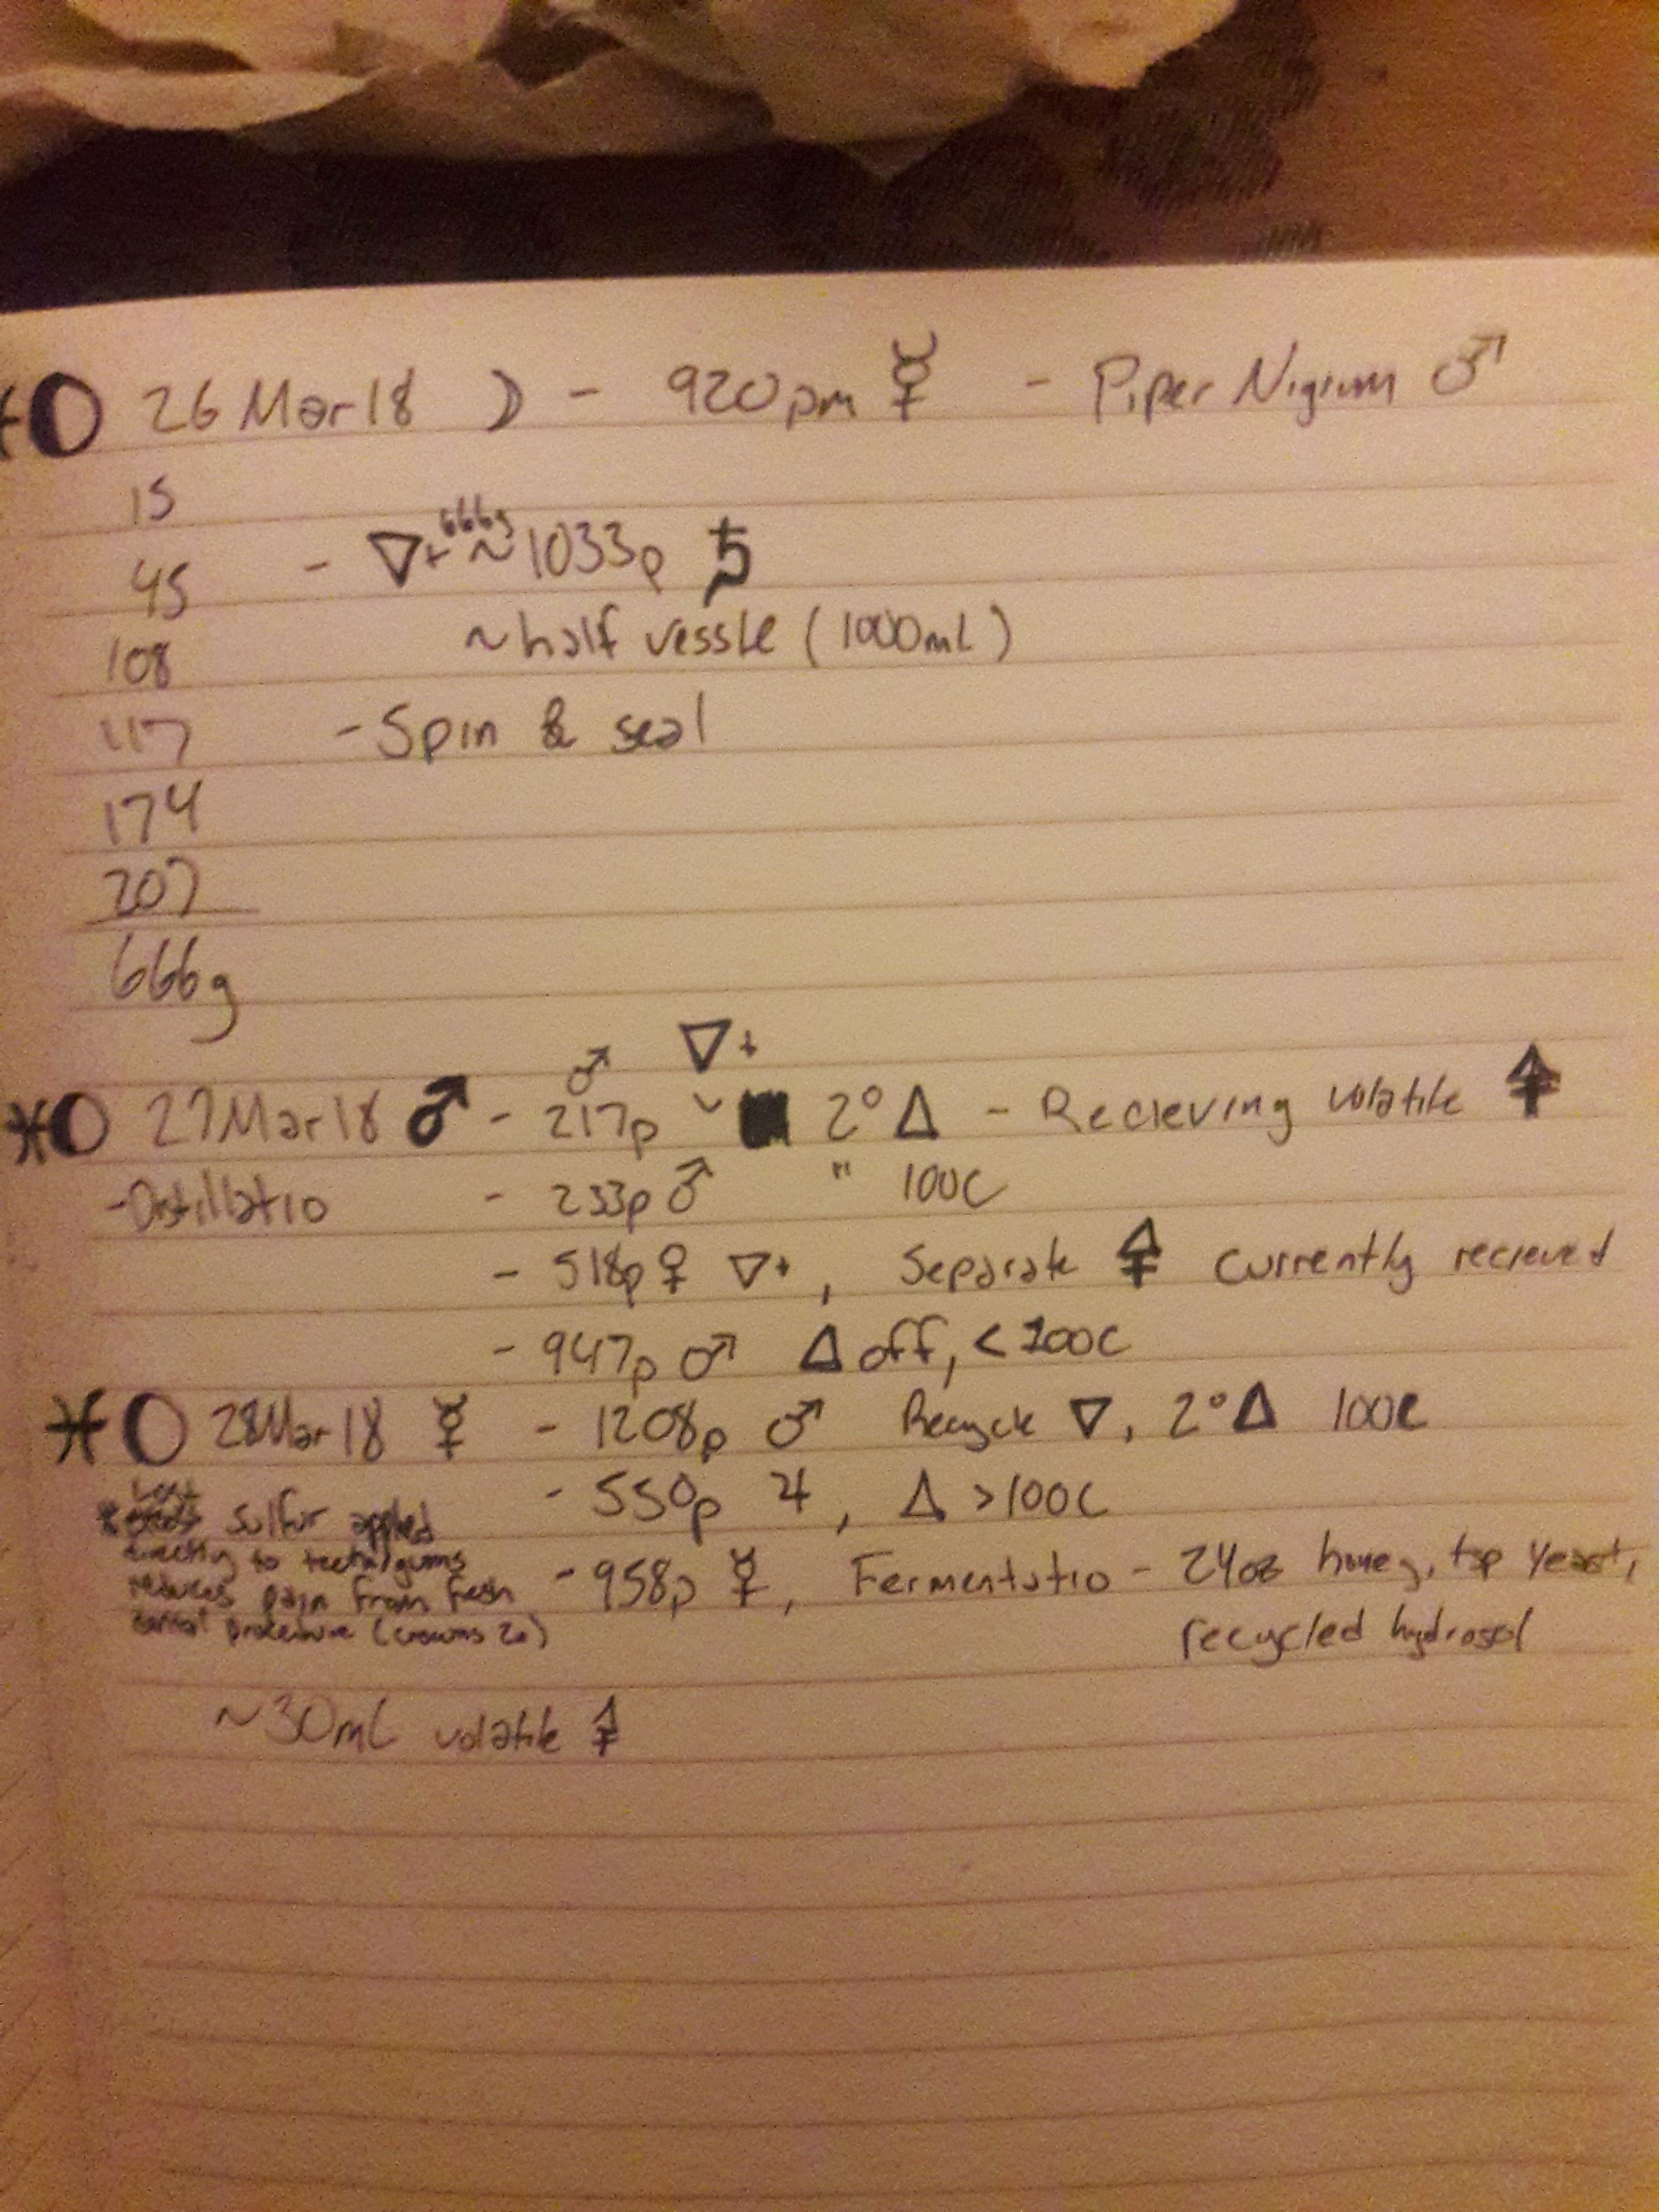 ♓ 🌖 26 Mar 18 ☽ - 920pm ☿ - Piper Nigrum ♂
15
45 - 🜄+ 666g ~1033p ♄
~half vessle (1000mL)
108
117 - Spin & seal
174
207
666g
♂ 🜄+
♓ 🌖 27 Mar 18 ♂ - 217p 2° 🜂 - Recieving volatile 🜍
-Distillatio - 233p ♂ " 100C
- 518p ♀ 🜄+, Separate 🜍 currently recieved
- 947p ♂ 🜂 off, <100C
♓ 🌖 28 Mar 18 ☿ - 1208p ♂ Recycle 🜄, 2° 🜂 100C
- 550p ♃, 🜂 >100C
* sulfur applied
directly to teeth/gums
reduces pain from fresh
procedure (crowns 2x)
- 958p ☿, Fermentatio - 24oz honey, tsp yeast,
recycled hydrosol
~30mL volatile 🜍